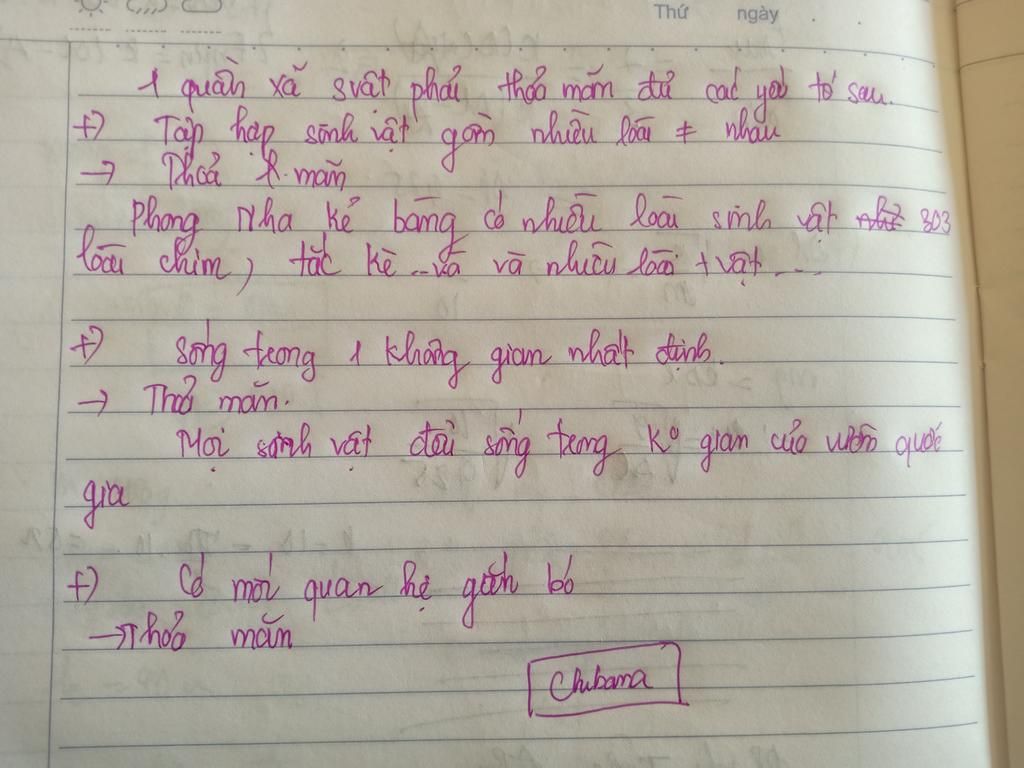 Thứ ngày . .
1 quần xã svật phải thoả mãn đủ các yếu tố sau.
+) Tập hợp sinh vật gồm nhiều loài ≠ nhau
→ Thoả mãn
Phong Nha kẻ bàng có nhiều loài sinh vật như 303
loài chim, tắc kè và và nhiều loài tvật ...
+) Sống trong 1 không gian nhất định.
→ Thoả mãn.
Mọi sinh vật đều sống trong Kº gian của vườn quốc
gia
+) Có mối quan hệ gắn bó
→ Thoả mãn
Chubama